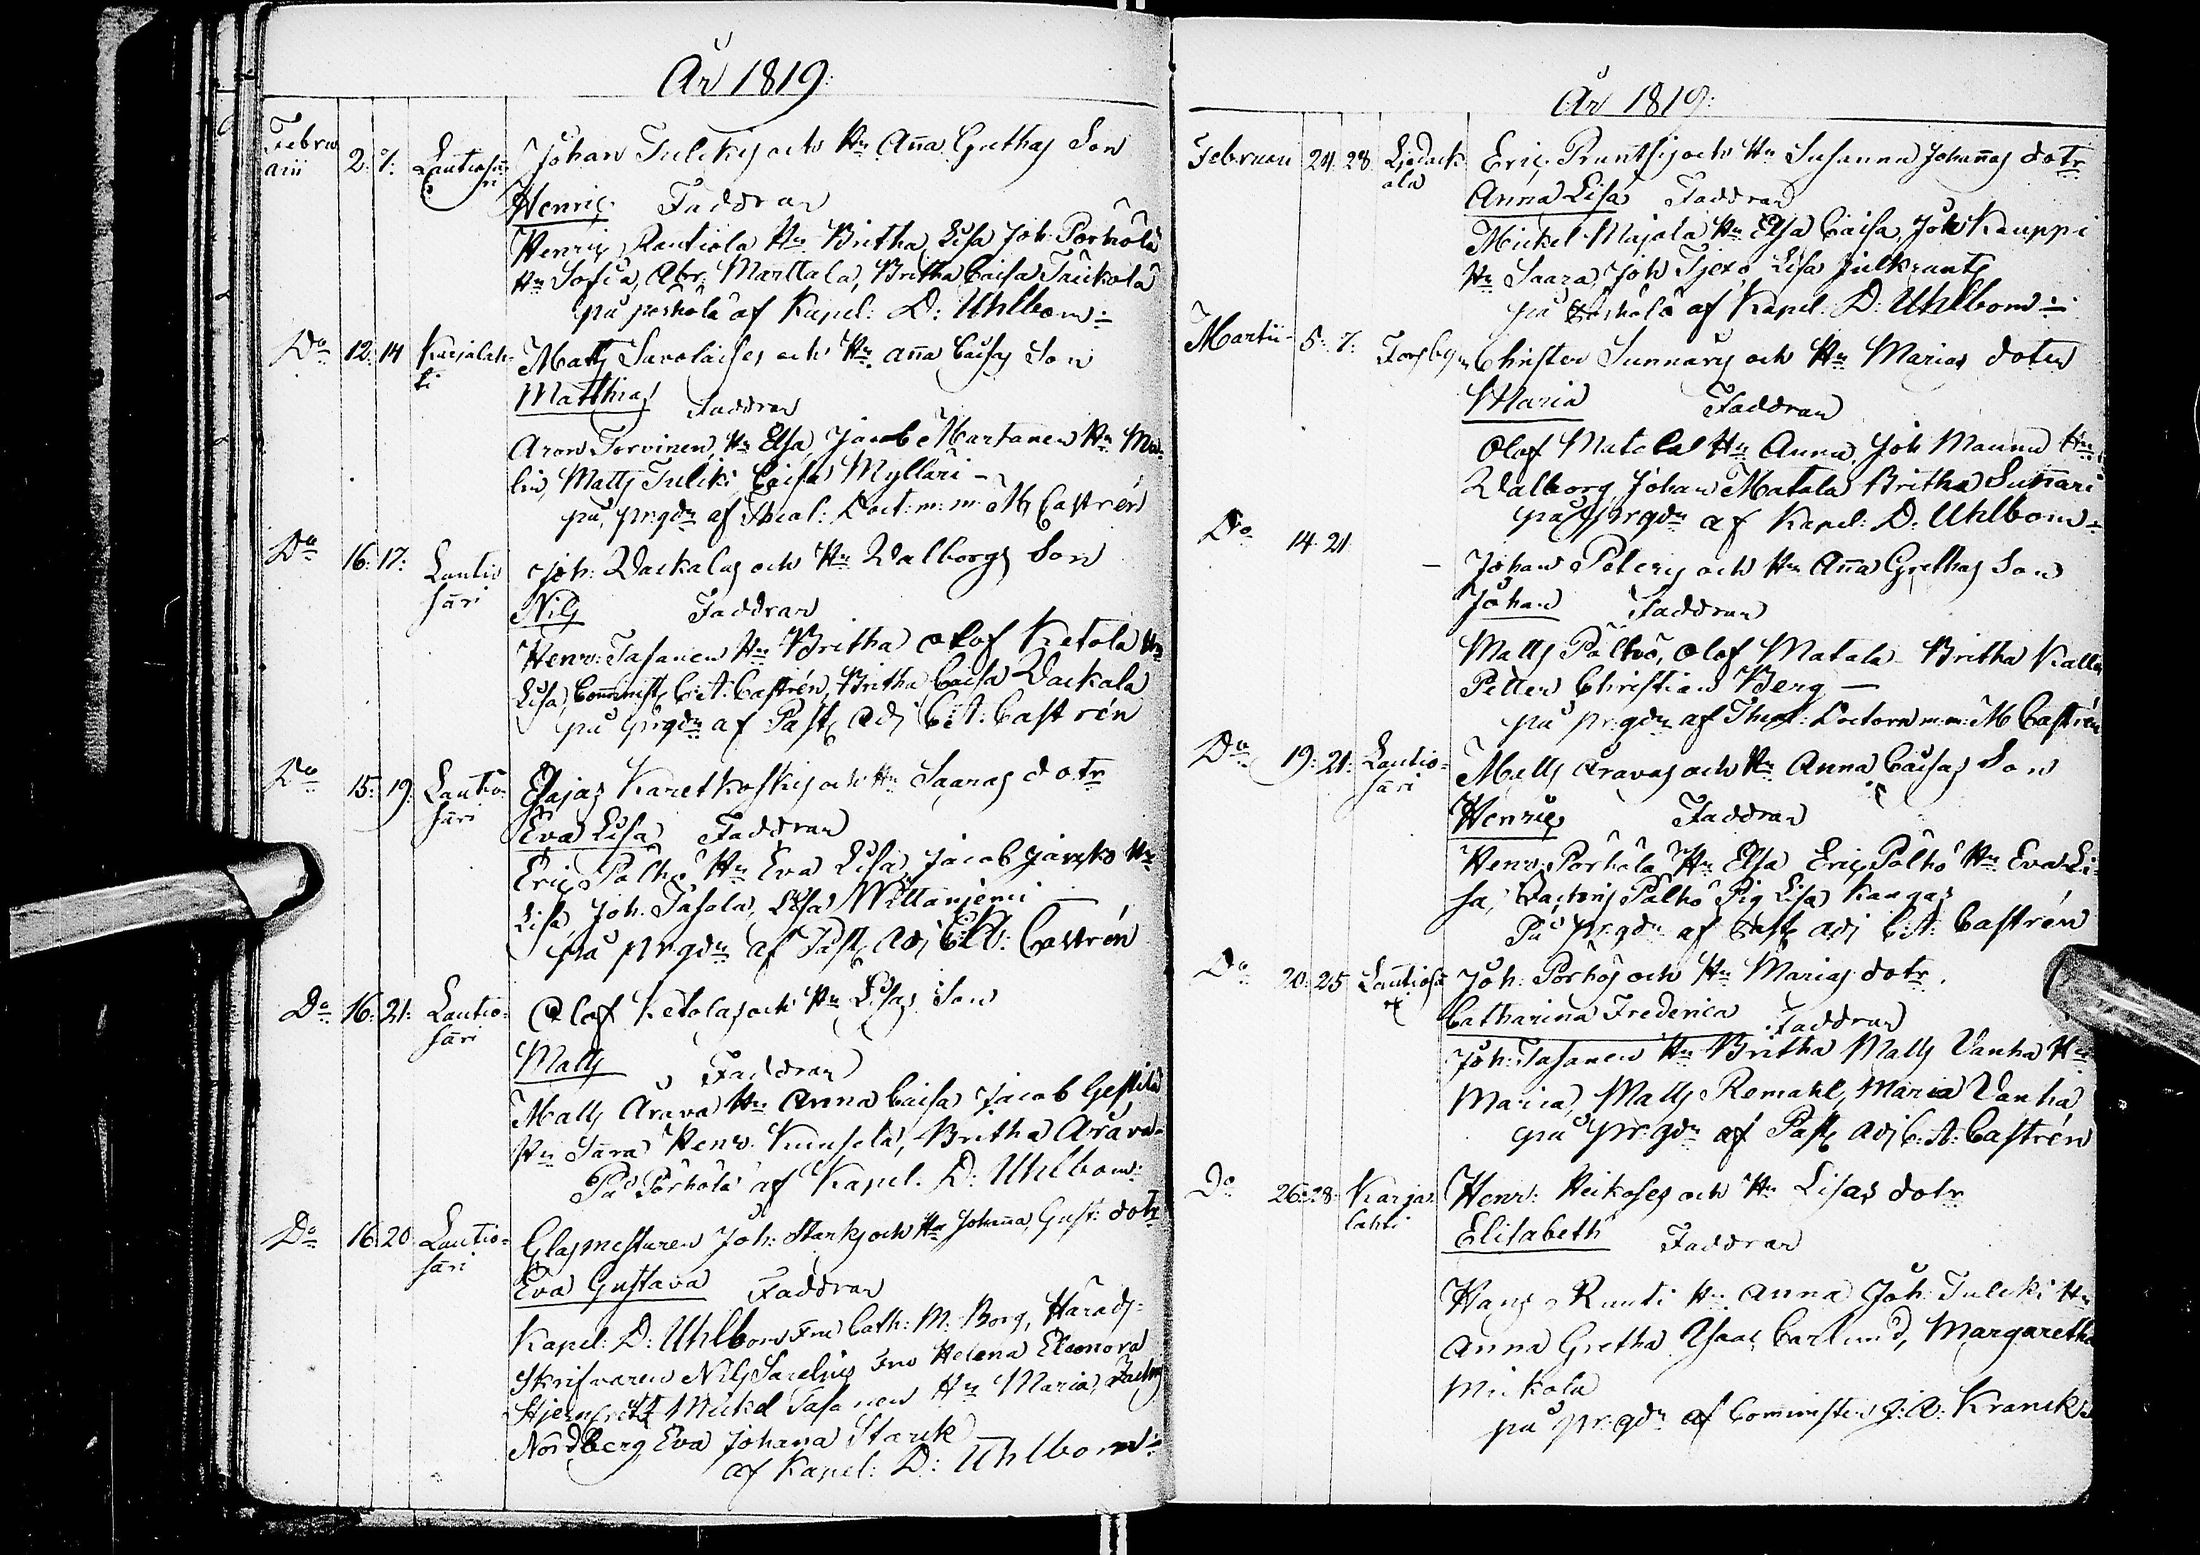 År 1819:
Febru
arii 2: 7: Lautiosaa
ri Johan Tulckis och Hu Aña Grethas Son
Henric Faddrar
Henric Rautiola Hu Britha Lisa Joh: Pörhölä
Hu Sofia, Abr: Marttala, Britha Caisa Taickola
på pörhölä af Kapel: D: Uhlbom
Do 12: 14 Karjalah-
ti Matts Savolaises och Hu Aña Caisas Son
Matthias Faddrar
Aron Torvinen, Hu Elsa, Jacob Martanen Hu Ma-
lin, Matts Tulcki Caisa Mylläri
på pr:gdn af Theol: Doct: m: m: M Castrén
Do 16: 17: Lautio
säri Joh: Vackalas och Hu Valborgs Son
Nils Faddrar
Henr: Tasanen Hu Britha Olof Ketola Hu
Lisa, Comminist: C: A: Castrén, Britha Caisa Vackala
på pr:gdn af Past: Adj C: A: Castrén
Do 15: 19: Lautio
säri Esajas Karetkoskis och Hu Saaras dotr
Eva Lisa Faddrar
Eric Palho Hu Eva Lisa, Jacob Jaaxko Hu
Lisa, Joh: Tasala, Lisa Wittaniemi
på pr:gdn af Past: Adj C: A: Castrén
Do 16: 21: Lautio-
säri Olof Ketolas och Hu Lisas Son
Matts Faddrar
Matts Arava Hu Anna Caisa Jacob Gestilä
Hu Sara Henr: Kuusela, Britha Arava
På Pörhölä af Kapel: D: Uhlbom:
Do 16 20 Lautio-
säri Glasmesturen Joh: Starks och Hu Johaña Gust: dotr
Eva Gustava Faddrar
Kapel: D: Uhlbom Fru Cath: M: Borg, Härads-
Skrifvaren Nils Sarelius Fru Helena Eleonora
Stjerncreutz Mickel Tasanen Hu Maria,
Nordberg Eva Johana Starck
af Kapel: D: Uhlbom
År 1819:
Februarii 24 28 Liedack
ala Eric Runtis och Hu Susanna Johañas dotr
Anna Lisa Faddrar
Mickel Majala Hu Elsa Caisa, Joh Kauppi
Hu Saara, Joh Tjexo Lisa Julkrantz
på Pörhölä af Kapel: D: Uhlbom
Martii 5: 7: Forsbyn Christer Sunnaris och Hu Marias doter
Maria Faddrar
Olof Matala Hu Anna, Joh Maunu Hu
Walborg, Johan Matala Britha Suñari
på pr:gdn af Kapel: D: Uhlbom
Do 14: 21 – Johan Peteris och Hu Aña Grethas Son
Johan Faddrar
Matts Palho, Olof Matala Britha Kallo
Petter Christian Berg
på pr:gdn af Theol: Doctorn m: m: M Castrén
Do 19: 21: Lautio-
säri Matts Aravas och Hu Anna Caisas Son
Henric Faddrar
Henr: Pörhölä Hu Elsa Eric Palho Hu Eva Li-
sa, Palho Pig Lisa Kangas
På pr:gdn af Past: Adj C: A: Castrén
Do 20: 25 Lautiosa
ri Joh: Pörhös och Hu Marias dotr.
Catharina Frederica Faddrar
Joh: Tasanen Hu Britha Matts Vanha Hu
Maria, Matts Remahl, Maria Vanha
på pr:gdn af Past: Adj C: A: Castrén
Do 26: 28: Karja
lahti Henr: Heikoses och Hu Lisas dotr
Elisabeth Faddrar
Hans Rauti Hu Anna Joh: Tulcki Hu
Anna Gretha Isaac Carlund, Margaretha
Mickola
på pr:gdn af Comministern J: A: Kranck